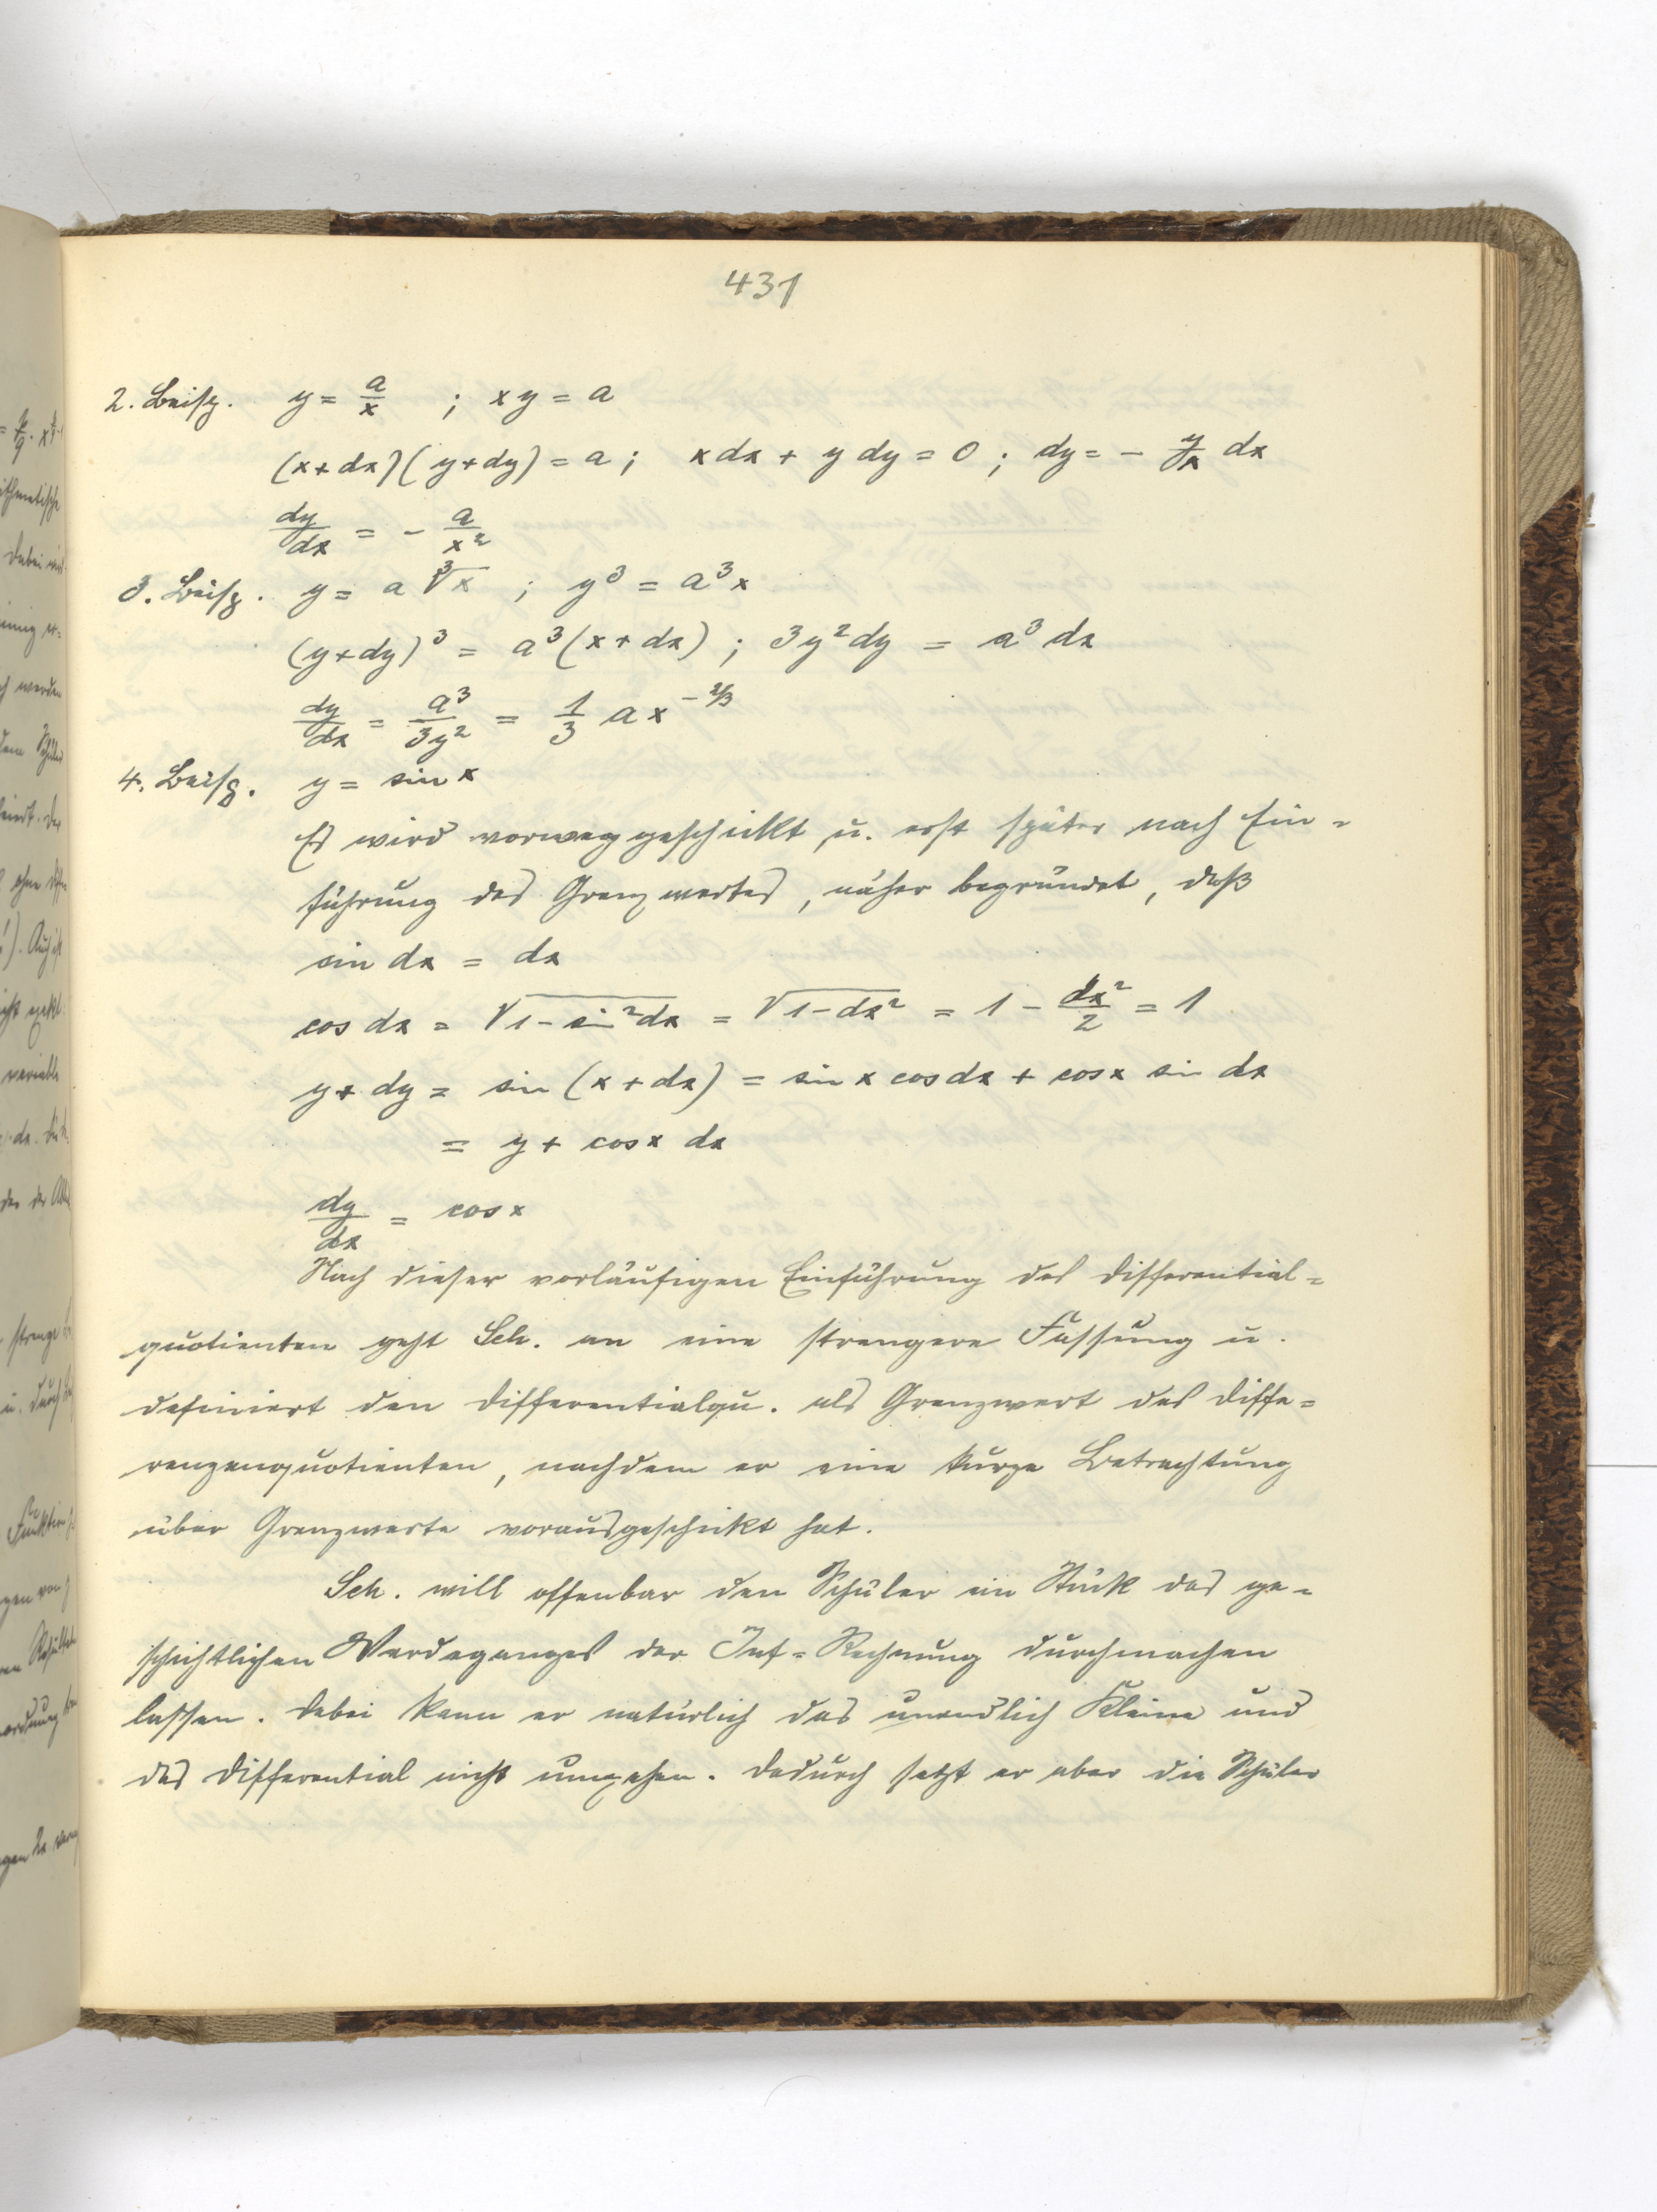 431
2. Beisp. y = a/x ; xy = a
(x+dx)(y+dy) = a ; xdx + ydy = 0 ; dy = - y/x dx
dy/dx = - a/x²
3. Beisp. y = a ∛x ; y³ = a³x
(y+dy)³ = a³(x+dx) ; 3y²dy = a³dx
dy/dx = a³/3y² = 1/3 a x^-2/3
4. Beisp. y = sin x
Es wird vorweggeschickt u. erst später nach Ein=
führung des Grenzwertes, näher begründet, daß
sin dx = dx
cos dx = √1-sin²dx = √1-dx² = 1 - dx²/2 = 1
y + dy = sin (x + dx) = sin x cos dx + cos x sin dx
= y + cos x dx
dy/dx = cos x
Nach dieser vorläufigen Einführung des Differential=
quotienten geht Sch. an eine strengere Fassung u.
definiert den Differentialqu. als Grenzwert des Diffe=
renzenquotienten, nachdem er eine kurze Betrachtung
über Grenzwerte vorausgeschickt hat.
Sch. will offenbar den Schüler ein Stück des ge=
schichtlichen Werdeganges der Inf=Rechnung durchmachen
lassen. Dabei kann er natürlich das unendlich Kleine und
das Differential nicht umgehen. Dadurch setzt er aber die Schüler